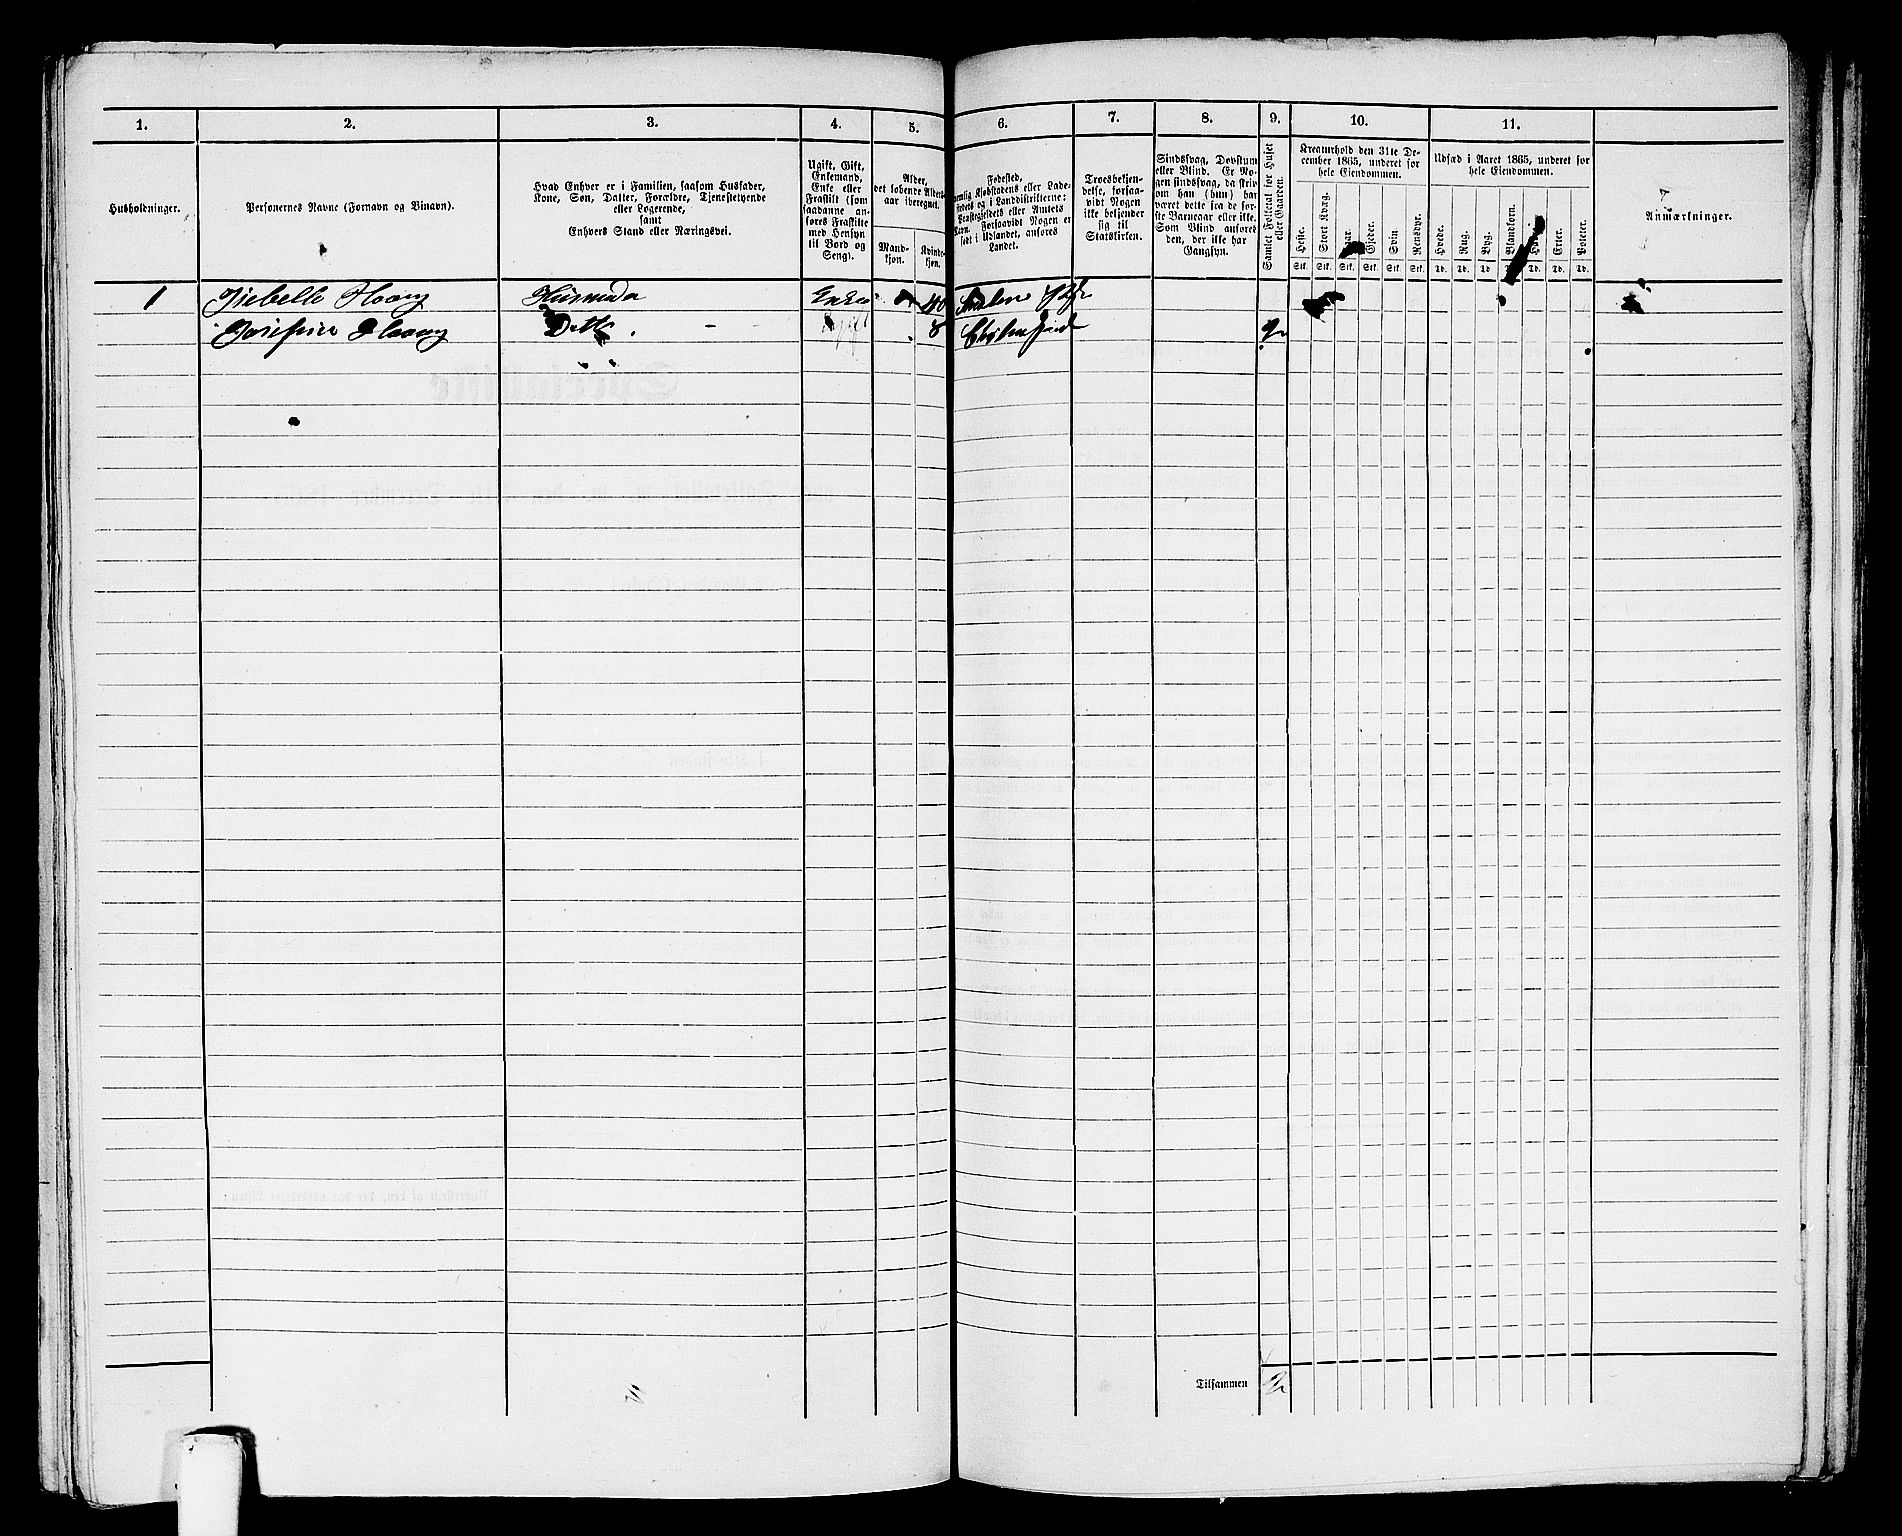 1.
2.
3.
4.
5.
6.
7.
8.
9.
10.
11.
Husholdninger.
Personernes Navne (Fornavn og Binavn).
Hvad Enhver er i Familien, saasom Husfader,
Kone, Søn, Datter, Forældre, Tjenestetyende
eller Logerende,
samt
Enhvers Stand eller Næringsvei.
Ugift, Gift,
Enkemand,
Enke eller
Fraskilt (som
saadanne an-
føres Fraskilte
med Hensyn
til Bord og
Seng).
Alder,
det løbende Alders-
aar iberegnet.
Mand-
kjøn.
Kvinde-
kjøn.
Fødested,
nemlig Kjøbstadens eller Lade-
stedets og i Landdistrikterne:
Præstegjeldets eller Amtets
Navn. Forsaavidt Nogen er
født i Udlandet, anføres
Landet.
Troesbekjen-
delse, forsaa-
vidt Nogen
ikke bekjender
sig til
Statskirken.
Sindssvag, Døvstum
eller Blind. Er No-
gen sindssvag, da skriv
om han (hun) har
været dette fra de før-
ste Barneaar eller ikke.
Som Blind anføres
den, der ikke har
Gangsyn.
Samlet Folketal for Huset
eller Gaarden.
Kreaturhold den 31te De-
cember 1865, underet for
hele Eiendommen.
Heste.
Stort Kvæg.
Gjeder.
Svin.
Rensdyr.
Stk. Stk. Stk. Stk. Stk. Stk.
Udsæd i Aaret 1865, underet for
hele Eiendommen.
Hvede.
Rug.
Byg.
Blandkorn.
Erter.
Poteter.
Td. Td. Td. Td. Td. Td.
Anmærkninger.
1 Enke 40
8 2
Tilsammen 2